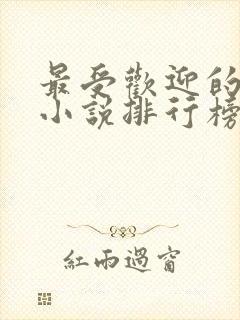 最受歡迎的
小說排行榜
紅雨過窗